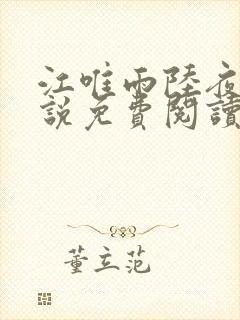 江唯雨陸夜
說免費閱讀
董立范